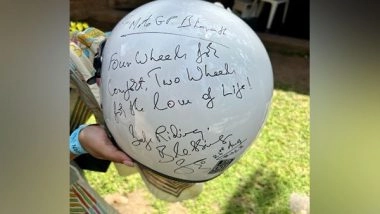 MotoGP Bharat
Four Wheels for
Comfort, Two Wheels
for the Love of Life!
Safe Riding.
Blessings